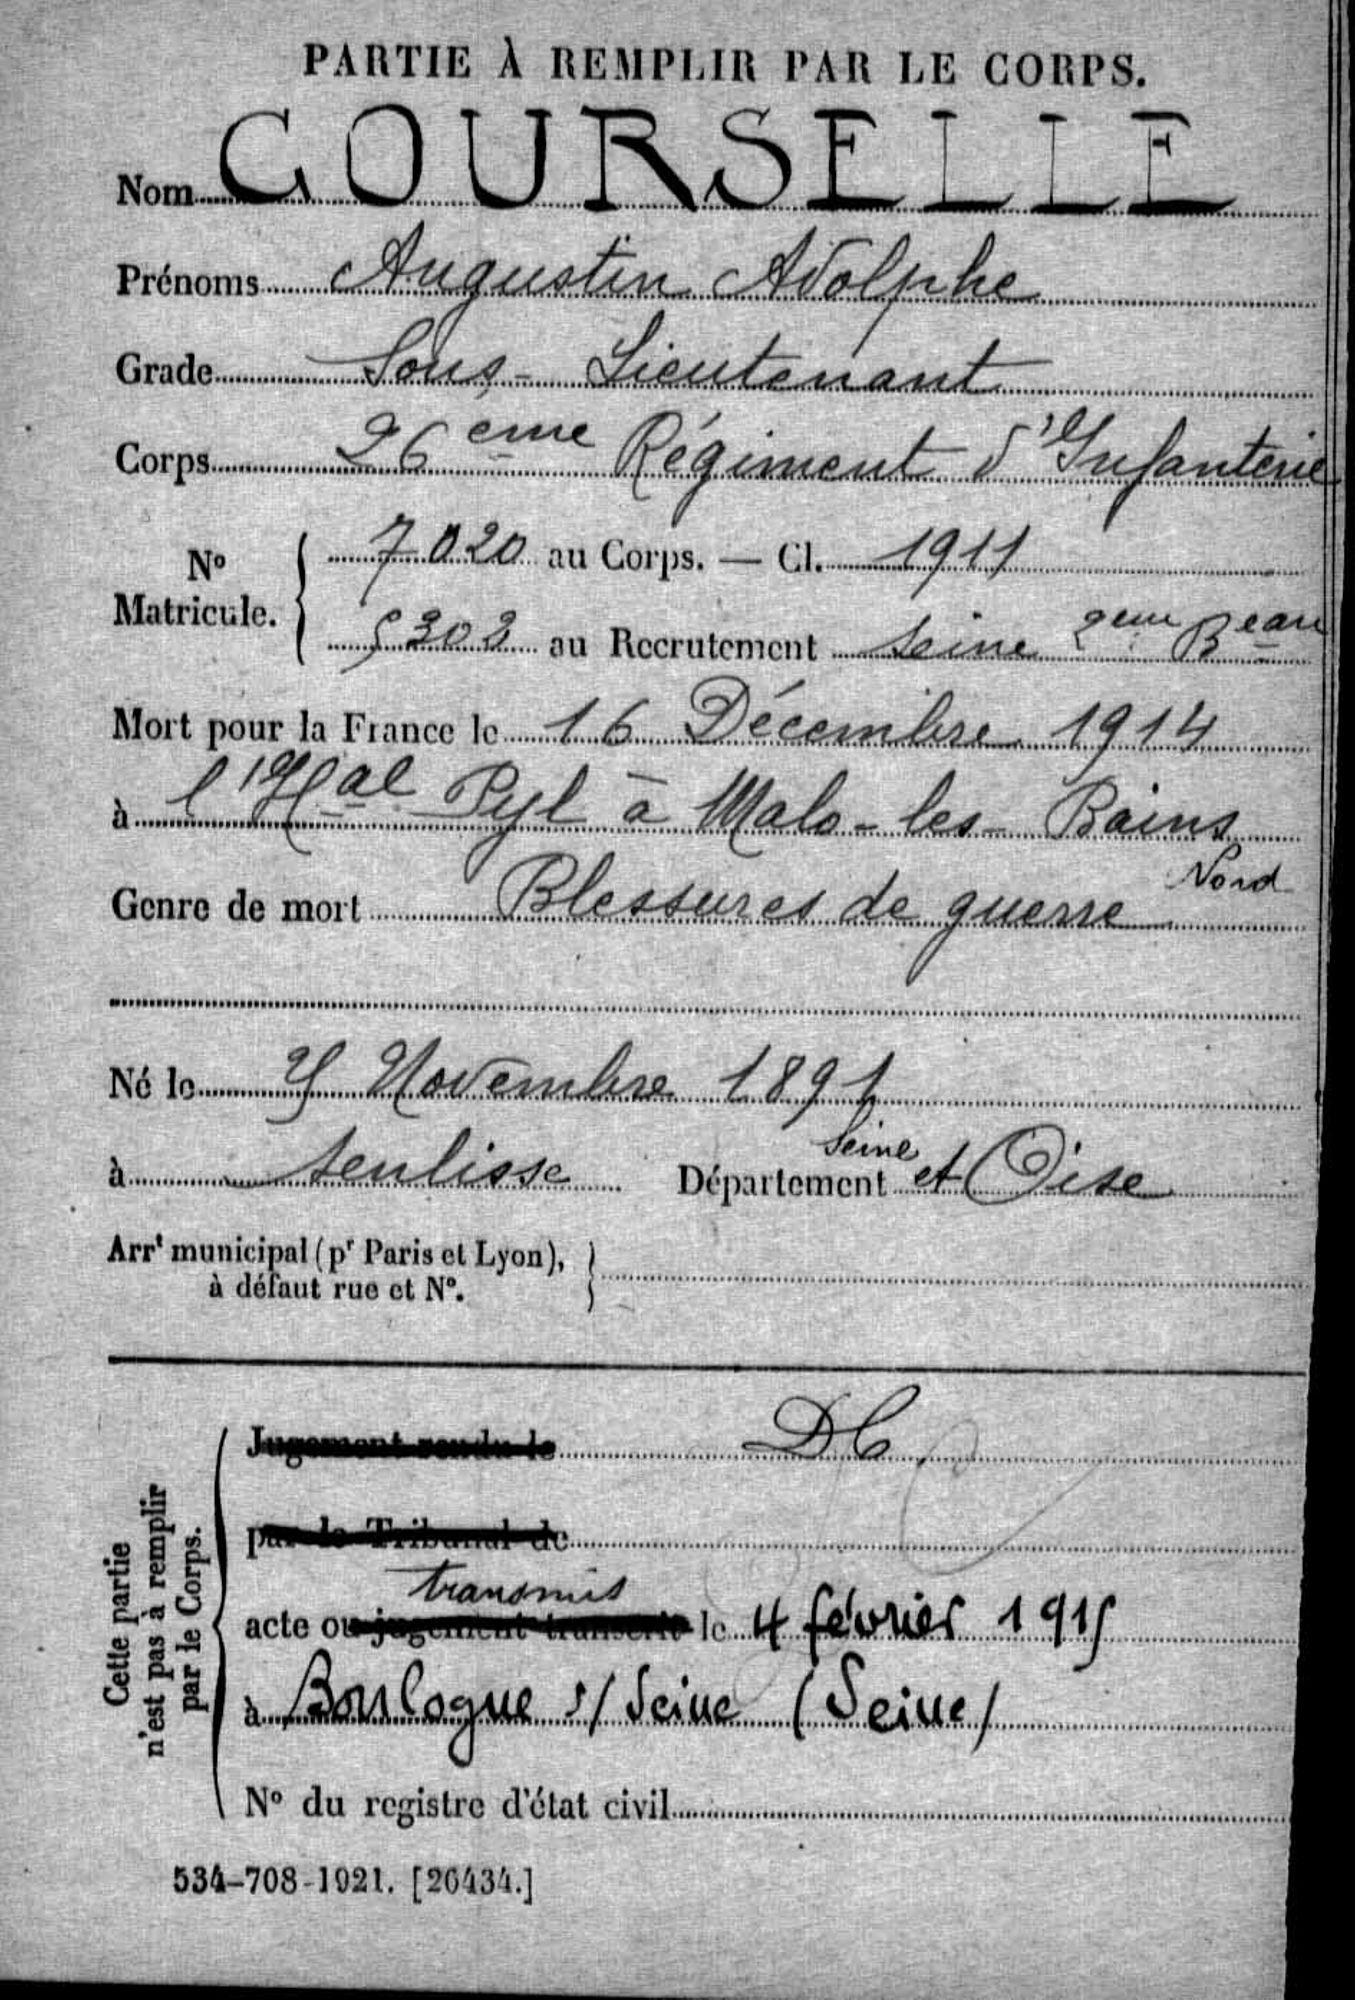 PARTIE À REMPLIR PAR LE CORPS.
Nom COURSELLE
Prénoms Augustin Adolphe
Grade Sous-Lieutenant
Corps 26eme Régiment d'Infanterie
No Matricule. 7020 au Corps. — Cl. 1911
5302 au Recrutement Seine 2eme Beau
Mort pour la France le 16 Décembre 1914
à l'Hal Pyl à Malo-les-Bains
Nord
Genre de mort Blessures de guerre
Né le Novembre 1891
à Senlisse Département Seine et Oise
Arrt municipal (pr Paris et Lyon),
à défaut rue et No.
Cette partie
n'est pas à remplir
par le Corps.
Jugement rendu le DC
par le Tribunal de
transmis
acte ou jugement transcrit le 4 février 1915
à Boulogne s/ Seine (Seine)
No du registre d'état civil
534-708-1921. [26434.]